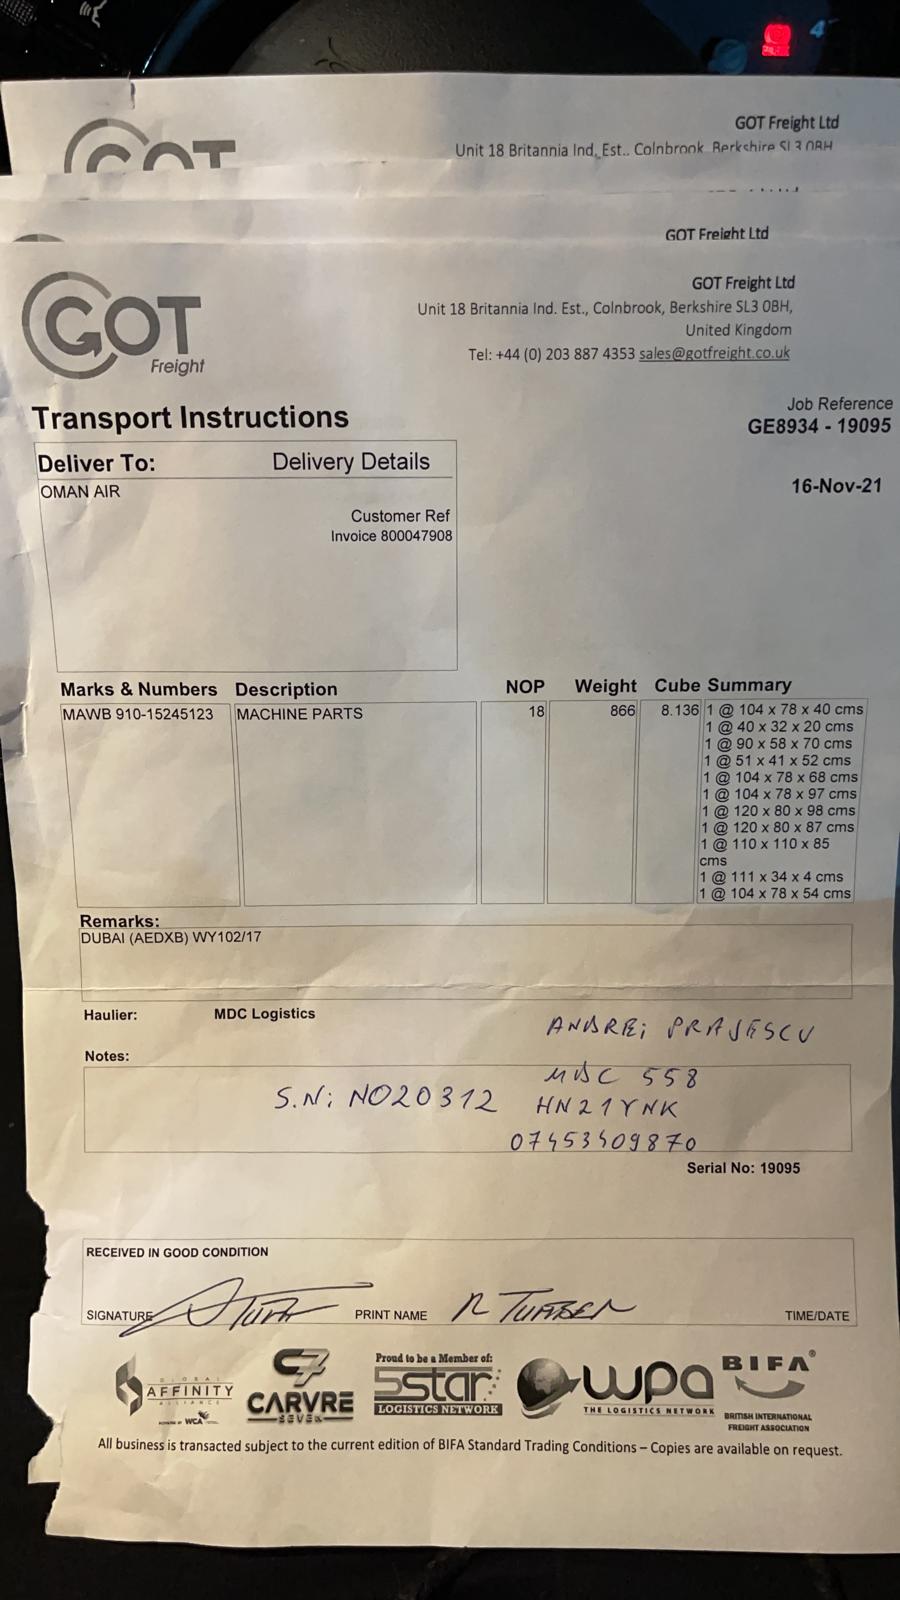 GOT Freight Ltd
Unit 18 Britannia Ind. Est.. Colnbrook. Berkshire SL3 0BH
GOT
GOT Freight Ltd
GOT Freight Ltd
Unit 18 Britannia Ind. Est., Colnbrook, Berkshire SL3 0BH,
United Kingdom
Tel: +44 (0) 203 887 4353 sales@gotfreight.co.uk
GOT
Freight
Transport Instructions
Job Reference
GE8934 - 19095
16-Nov-21
Deliver To: Delivery Details
OMAN AIR
Customer Ref
Invoice 800047908
Marks & Numbers Description NOP Weight Cube Summary
MAWB 910-15245123 MACHINE PARTS 18 866 8.136 1 @ 104 x 78 x 40 cms
1 @ 40 x 32 x 20 cms
1 @ 90 x 58 x 70 cms
1 @ 51 x 41 x 52 cms
1 @ 104 x 78 x 68 cms
1 @ 104 x 78 x 97 cms
1 @ 120 x 80 x 98 cms
1 @ 120 x 80 x 87 cms
1 @ 110 x 110 x 85
cms
1 @ 111 x 34 x 4 cms
1 @ 104 x 78 x 54 cms
Remarks:
DUBAI (AEDXB) WY102/17
Haulier: MDC Logistics
ANDREi PRAJESCU
Notes:
MDC 558
S.N: NO20312 HN21YNK
07453409870
Serial No: 19095
RECEIVED IN GOOD CONDITION
SIGNATURE PRINT NAME R TURNER TIME/DATE
GLOBAL AFFINITY ALLIANCE
POWERED BY WCA
C7 CARVRE SEVEN
Proud to be a Member of:
5star
LOGISTICS NETWORK
wpa
THE LOGISTICS NETWORK
BIFA®
BRITISH INTERNATIONAL
FREIGHT ASSOCIATION
All business is transacted subject to the current edition of BIFA Standard Trading Conditions – Copies are available on request.